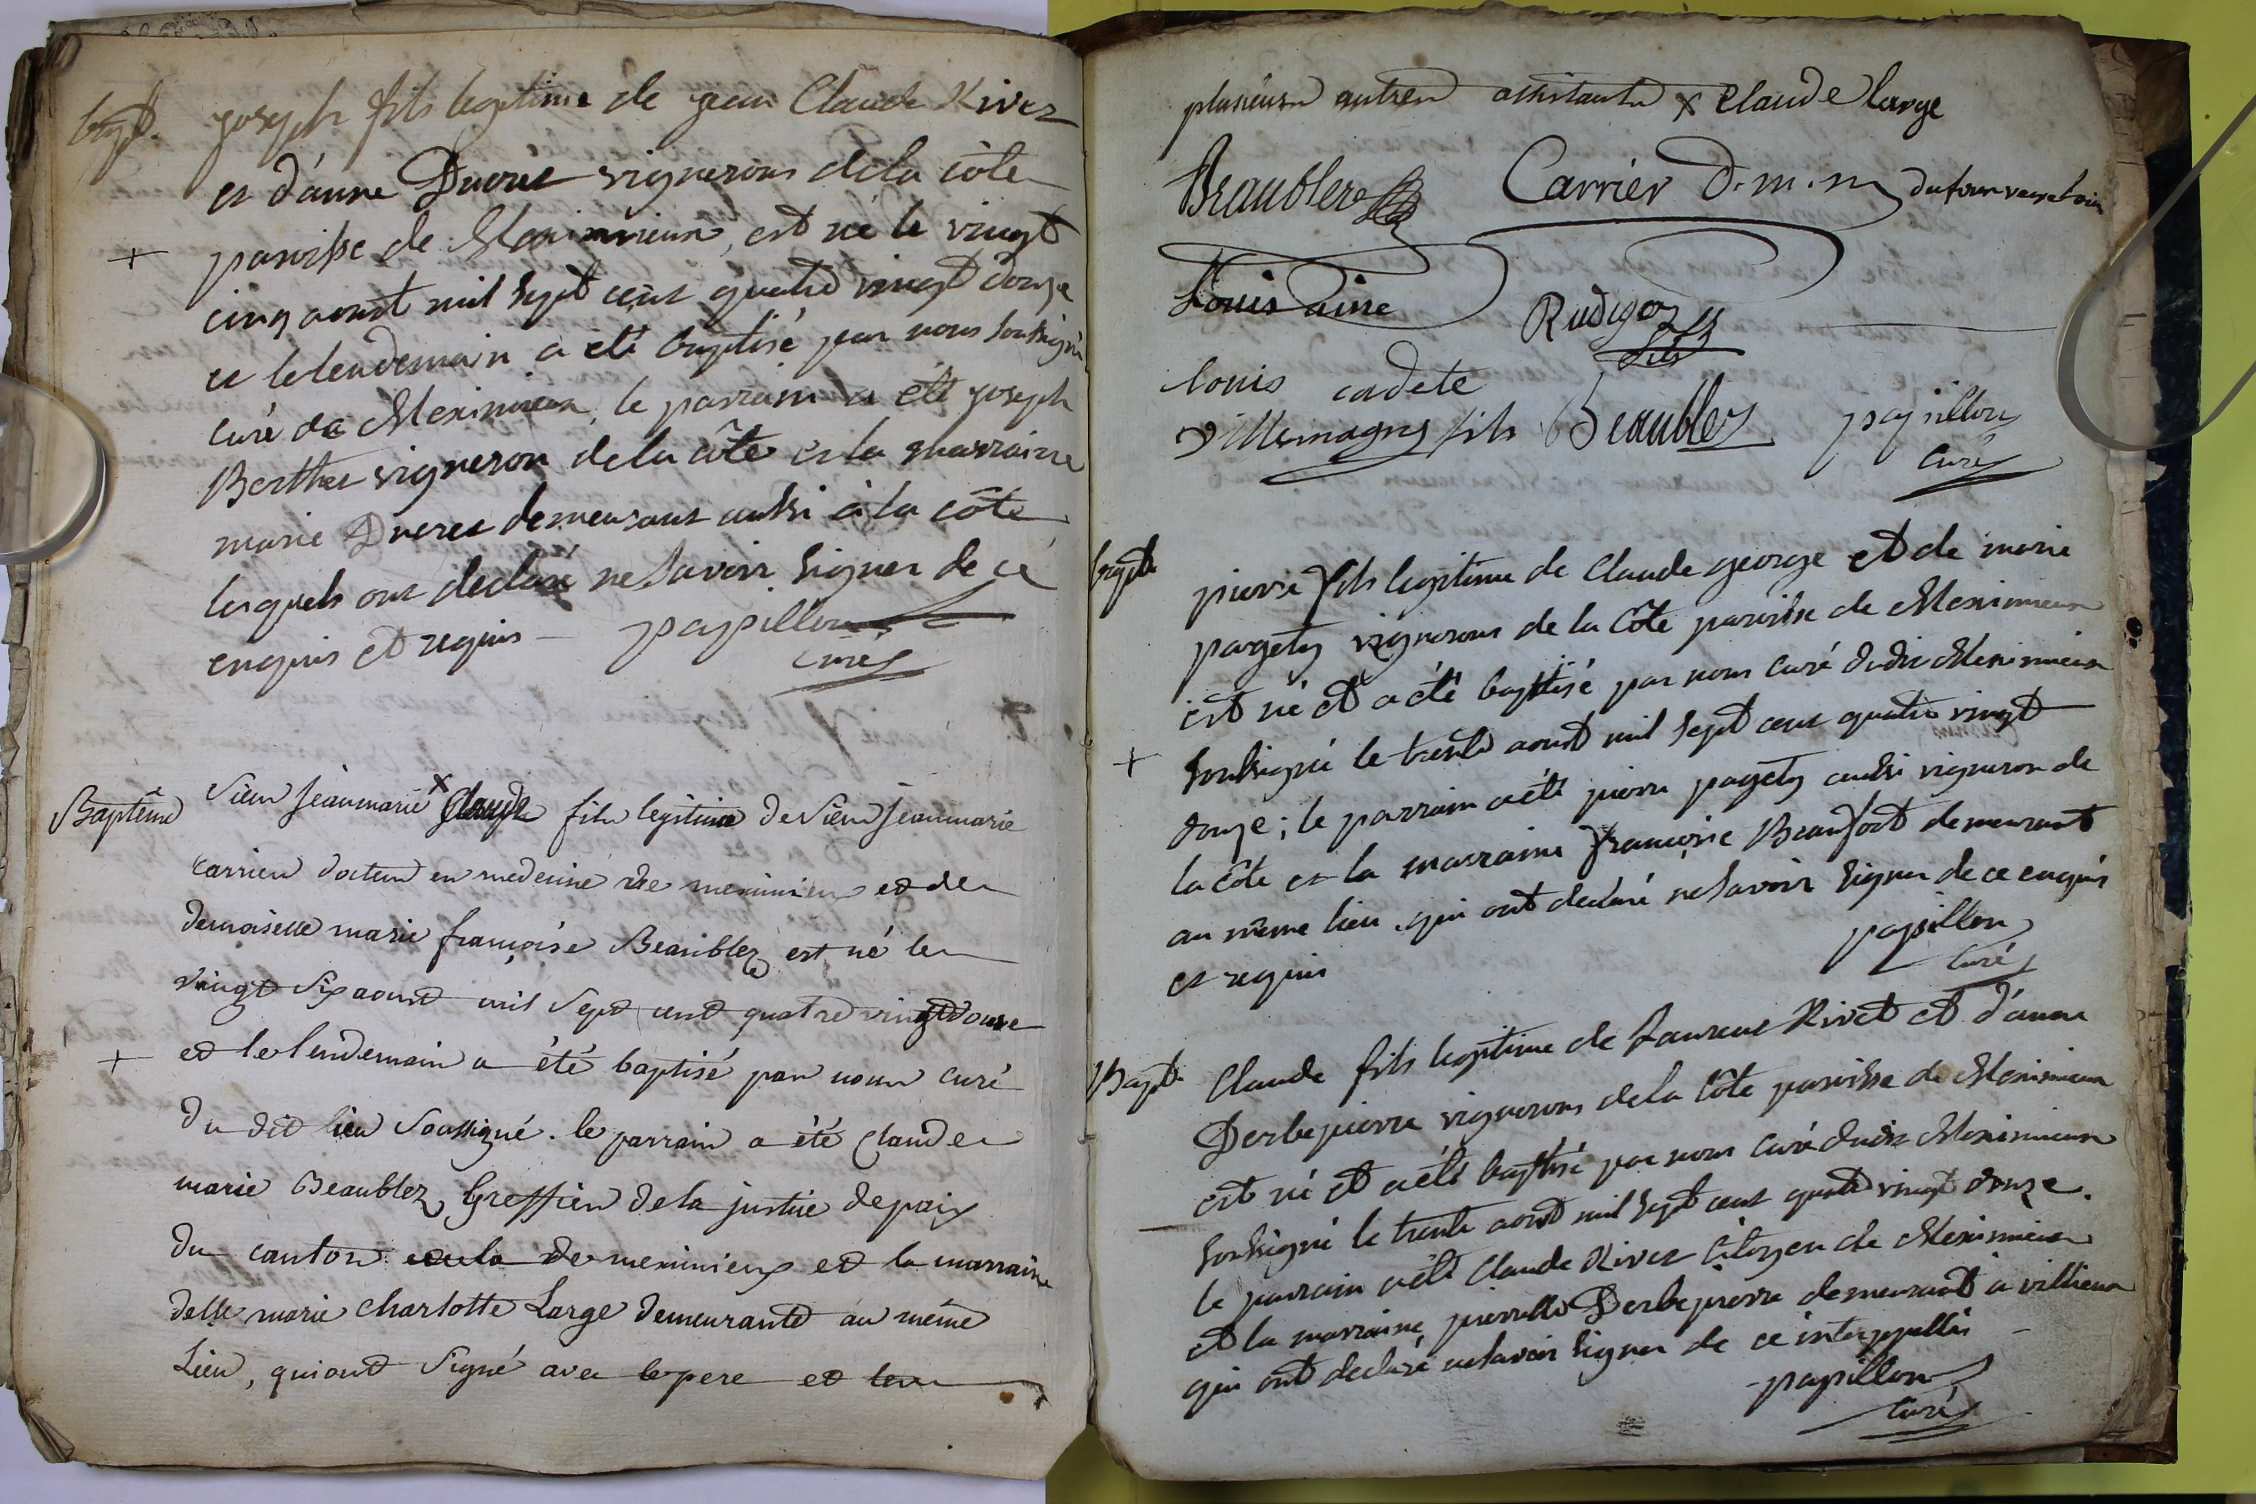 bapt.
joseph fils legitime de jean Claude Rivet
et d'anne Ducret vignerons de la côte
paroisse de Meximieux, est né le vingt
cinq aoust mil sept cent quatre vingt douze
et le lendemain a été baptisé par nous soussigné
curé de Meximieux, le parrain a été joseph
Berthet vigneron de la côte et la marraine
marie Ducret demeurant aussi à la côte
lesquels ont declaré ne savoir signer de ce
enquis et requis papillon
curé
Baptême
Sieur jean marie x Claude fils legitime de Sieur jean marie
carrier docteur en medecine de meximieux et de
demoiselle marie françoise Beaublez est né le
vingt six aoust mil sept cent quatre vingt douze
et le lendemain a été baptisé par nous curé
du dit lieu Soussigné. le parrain a été Claude
marie Beaublez Greffier de la justice de paix
du canton de meximieux et la marraine
delle marie charlotte Large demeurante au même
Lieu, qui ont Signé avec le pere et
plusieurs autres assistants x Claude large
Beaublez Carrier d.m.m dufour
Louis aine Rudigoz
fils
louis cadete
Villemagne fils Beaublez papillon
curé
bapt.
pierre fils legitime de Claude george et de marie
pagety vignerons de la Côte paroisse de Meximieux
est né et a été baptisé par nous curé dudit Meximieux
soussigné le trente aoust mil sept cent quatre vingt
douze; le parrain a été pierre pagety aussi vigneron de
la côte et la marraine françoise Beaufort demeurant
au même lieu. qui ont declaré ne savoir signer de ce enquis
et requis papillon
curé
Bapt.
Claude fils legitime de Laurent Rivet et d'anne
Derbepierre vignerons de la Côte paroisse de Meximieux
est né et a été baptisé par nous curé dudit Meximieux
soussigné le trente aoust mil sept cent quatre vingt douze.
le parrain a été Claude Rivet Citoyen de Meximieux
et la marraine pierrette Derbepierre demeurant a villieux
qui ont declaré ne savoir signer de ce interppellés
papillon
curé